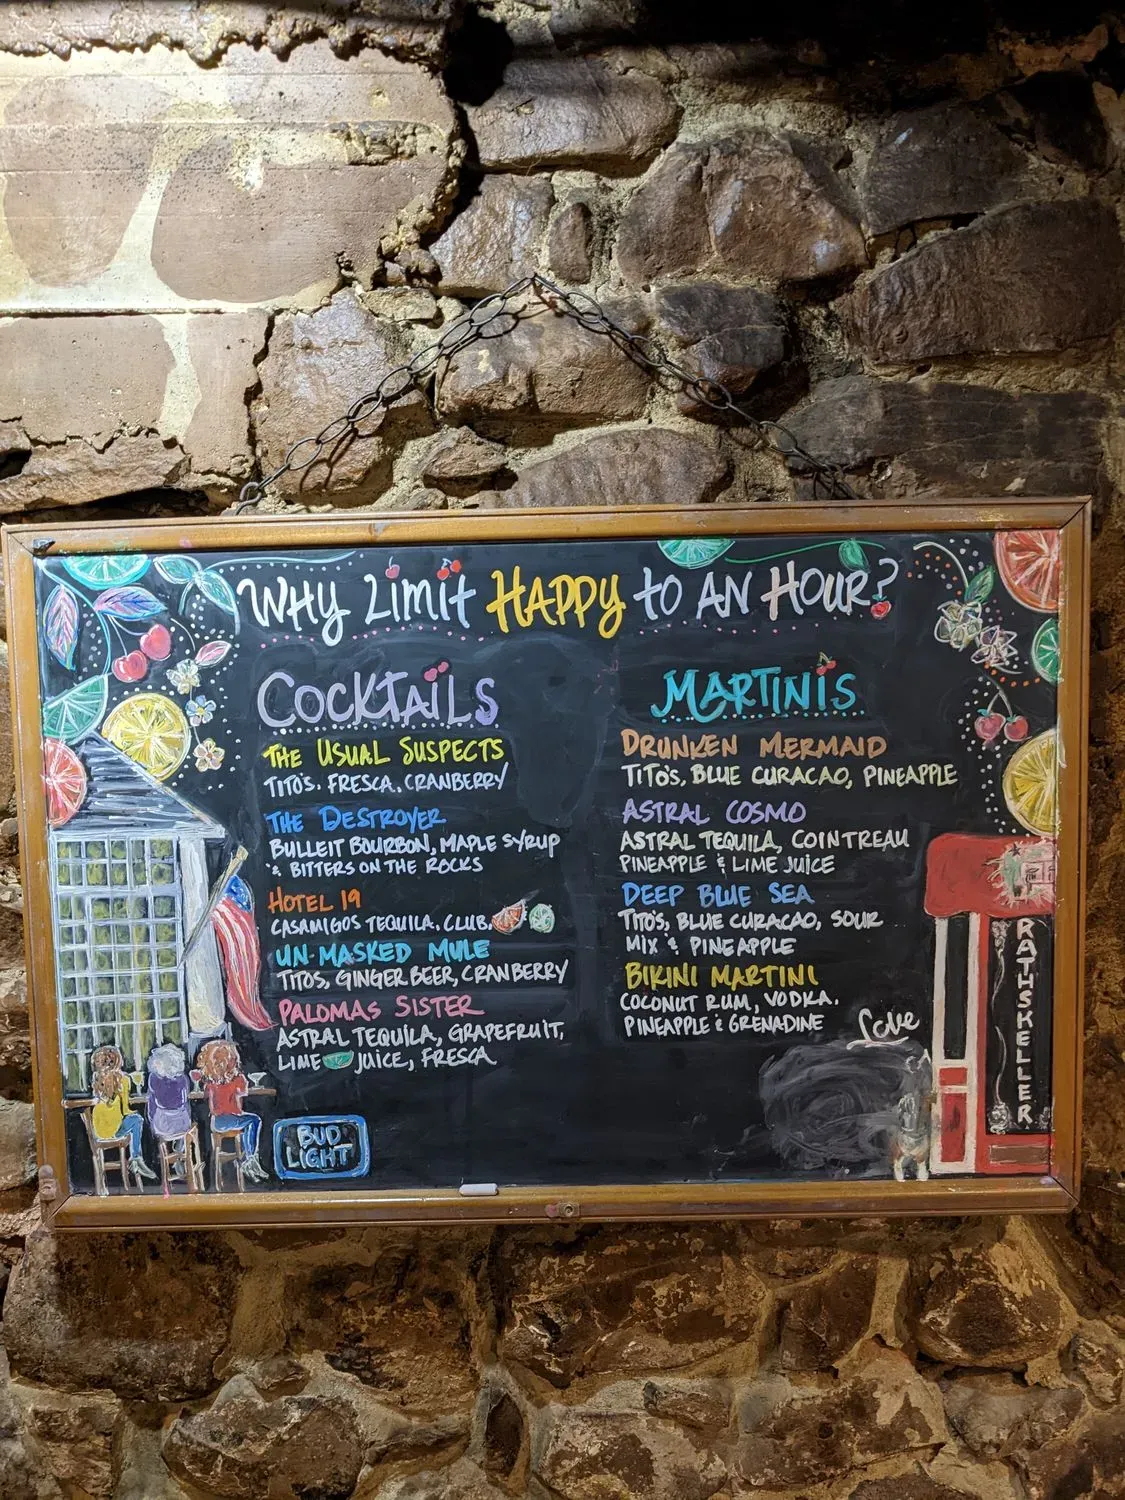 WHY Limit HAPPY to AN HOUR?
COCKTAiLS
THE USUAL SUSPECTS
TITO'S. FRESCA. CRANBERRY
THE DESTROYER
BULLEIT BOURBON, MAPLE SYRUP
& BITTERS ON THE ROCKS
HOTEL 19
CASAMIGOS TEQUILA, CLUB,
UN-MASKED MULE
TITOS, GINGER BEER, CRANBERRY
PALOMAS SISTER
ASTRAL TEQUILA, GRAPEFRUIT,
LIME JUICE, FRESCA
BUD
LIGHT
MARTINiS
DRUNKEN MERMAID
TITO'S, BLUE CURACAO, PINEAPPLE
ASTRAL COSMO
ASTRAL TEQUILA, COINTREAU
PINEAPPLE & LIME JUICE
DEEP BLUE SEA
TITO'S, BLUE CURACAO, SOUR
MIX & PINEAPPLE
BIKINI MARTINI
COCONUT RUM, VODKA,
PINEAPPLE & GRENADINE
Love
RATHSKELLER